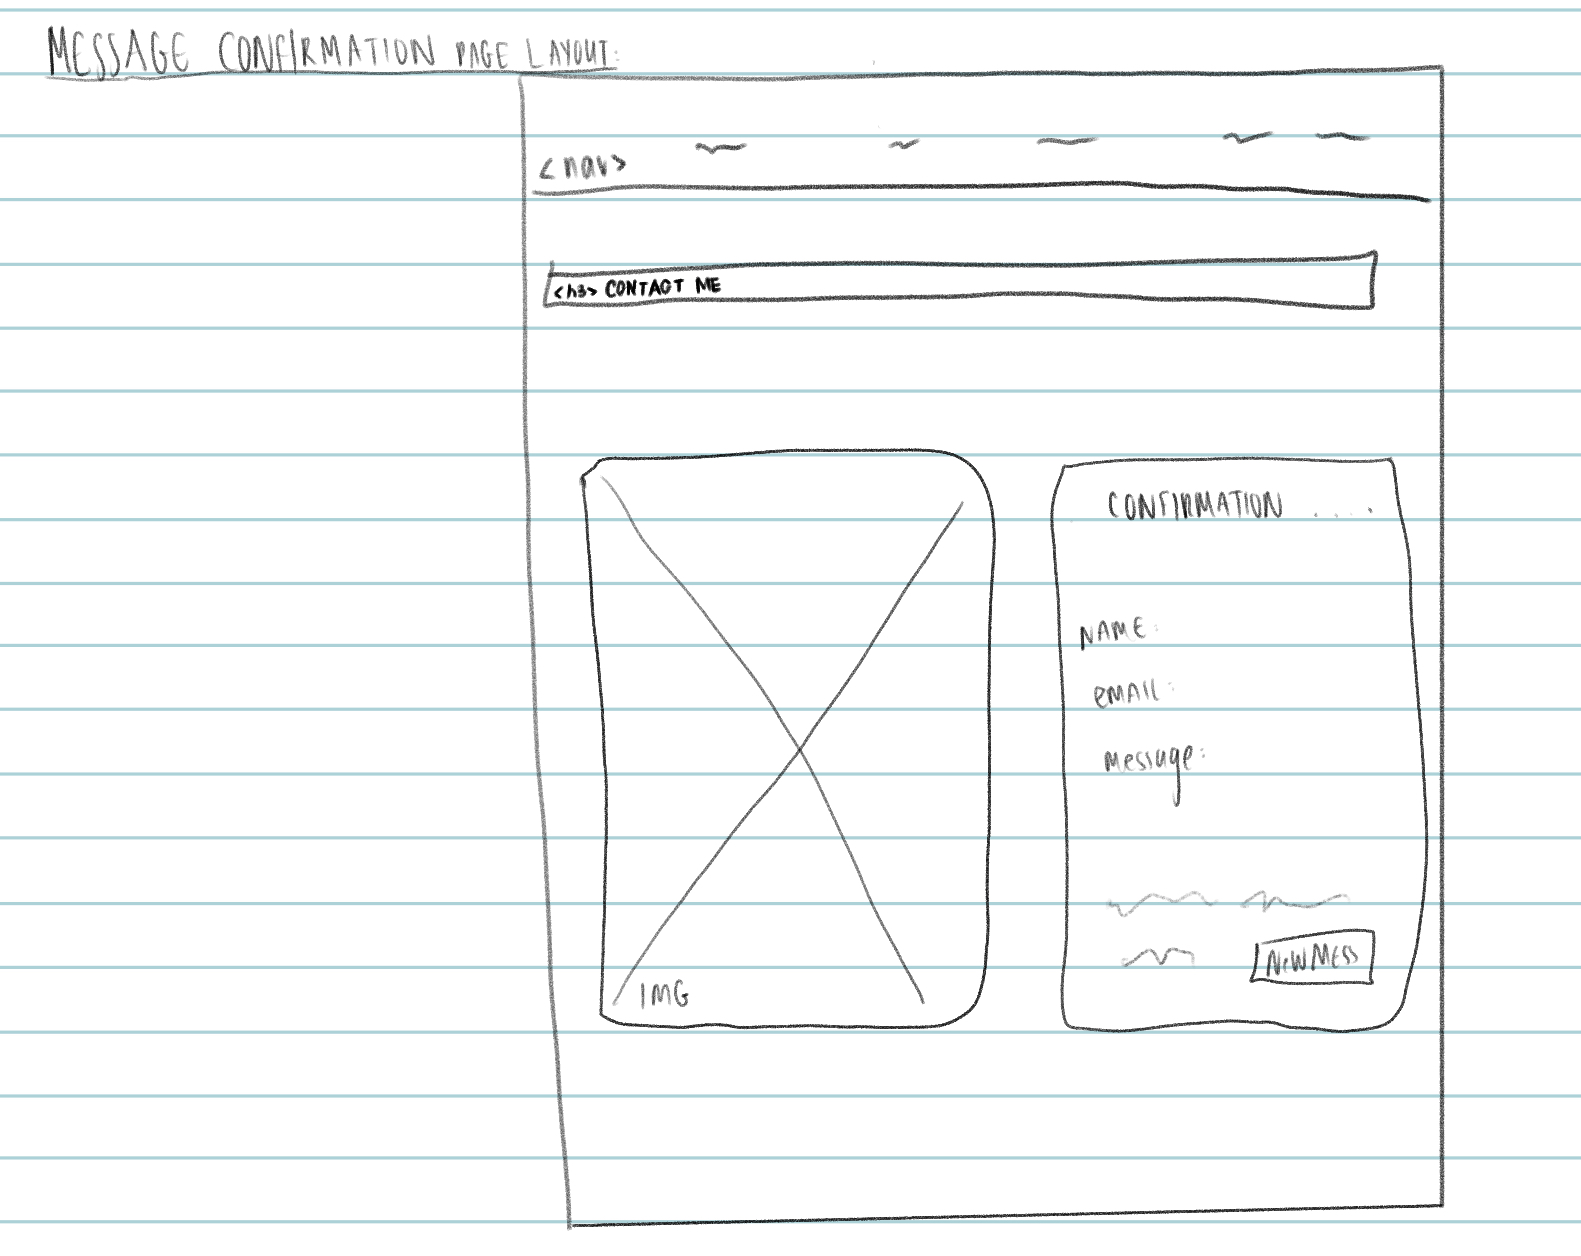 MESSAGE CONFIRMATION PAGE LAYOUT:
<nav>
<h3> CONTACT ME
CONFIRMATION ....
NAME:
eMAIL:
Message:
NeWMESS
IMG